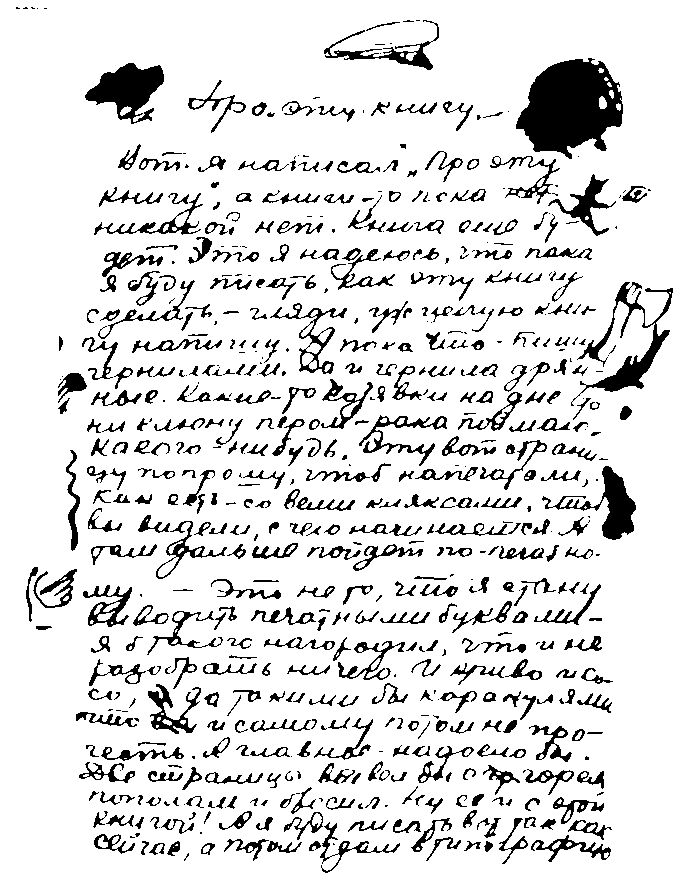 Про эту книгу.
Вот я написал „Про эту
книгу", а книги-то пока
никакой нет. Книга еще бу-
дет. Это я надеюсь, что пока
я буду писать, как эту книгу
сделать, — гляди, уж целую кни-
гу напишу. А пока что - пишу
чернилами. Да и чернила дрян-
ные. Какие-то козявки на дне
ни клюну пером - рака поймаю.
какого-нибудь. Эту вот страни-
цу попрошу, чтоб напечатали,
как есть - со всеми кляксами, чтоб
вы видели, с чего начинается А
там дальше пойдет по-печатно-
му. — Это не то, что я стану
выводить печатными буквами -
я б такого нагородил, что и не
разобрать ничего. И криво и ко-
со, да такими бы каракулями
что и самому потом не про-
честь. А главное - надоело бы.
Две страницы вывел бы с горем
пополам и бросил. Ну ее и с этой
книгой! А я буду писать вот так как
сейчас, а потом отдам в типографию